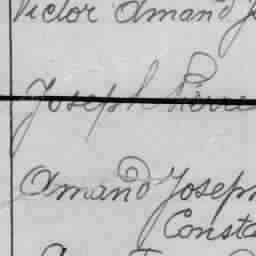 Victor Amand
Joseph Pierre
Amand Joseph
Consta